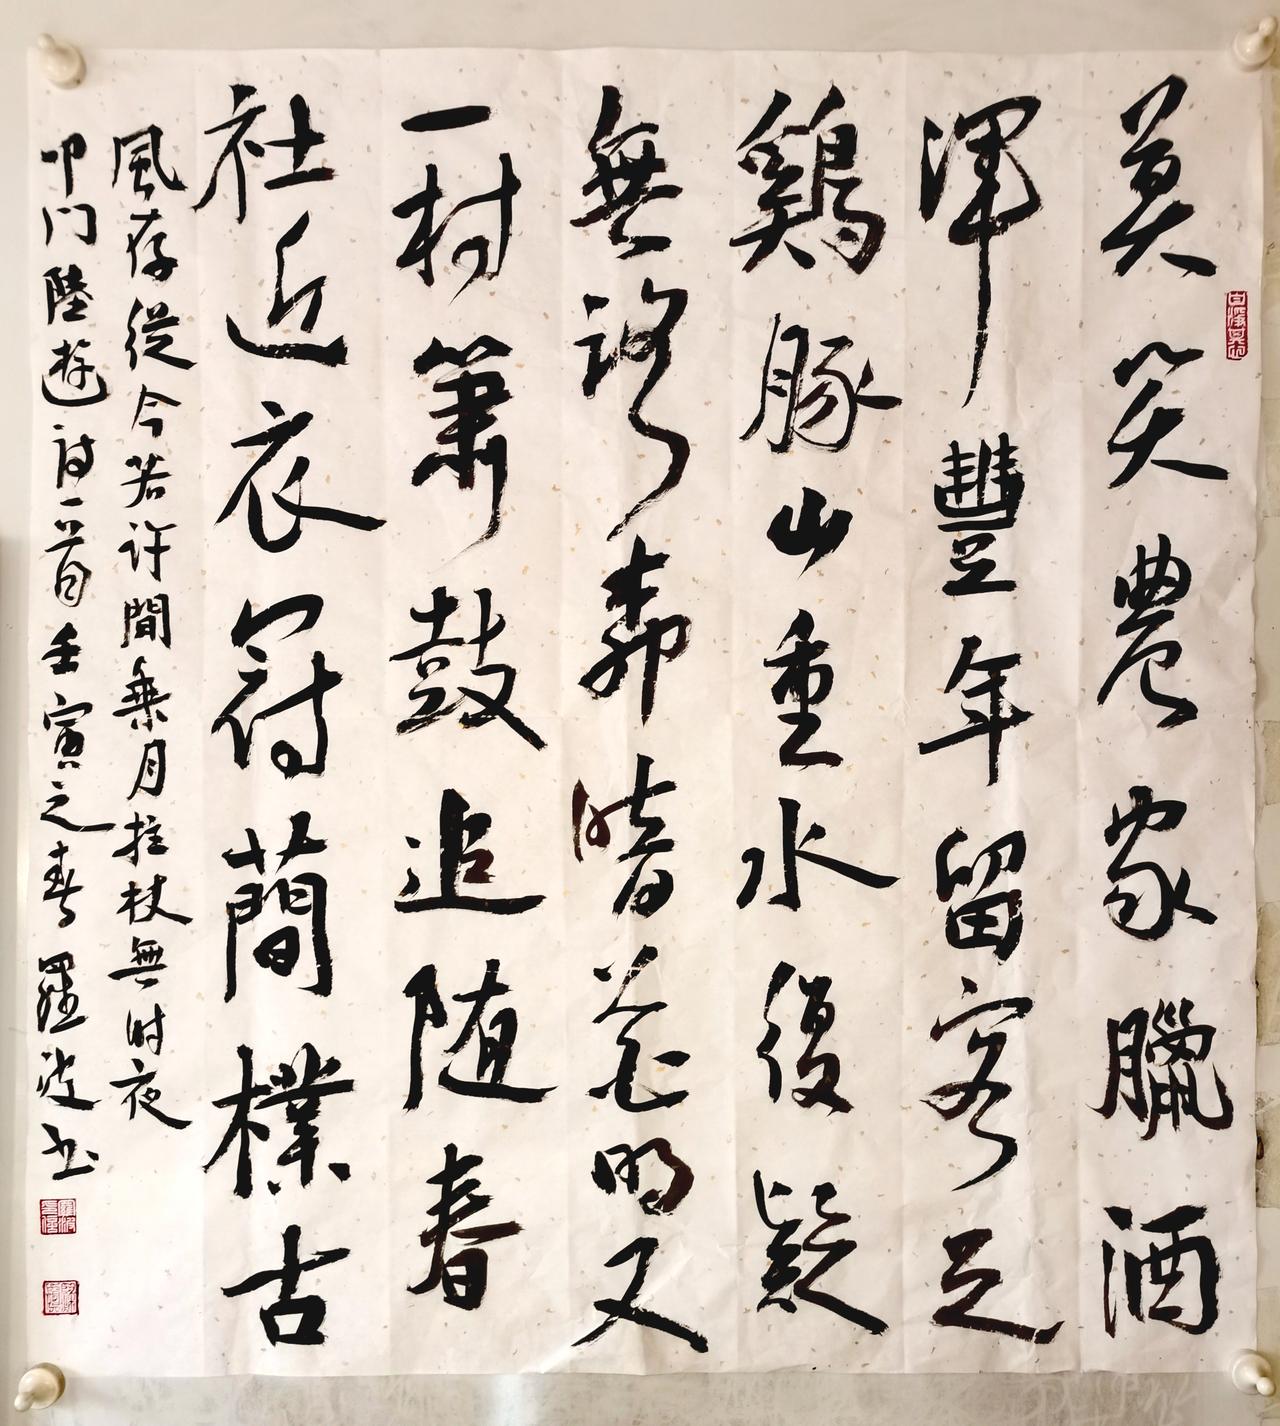 莫笑農家臘酒
渾豐年留客足
鷄豚山重水復疑
無路柳暗花明又
一村簫鼓追随春
社近衣冠蕳樸古
風存從今若许閒乗月拄杖無时夜
叩门陸游诗一首壬寅之春羅波书